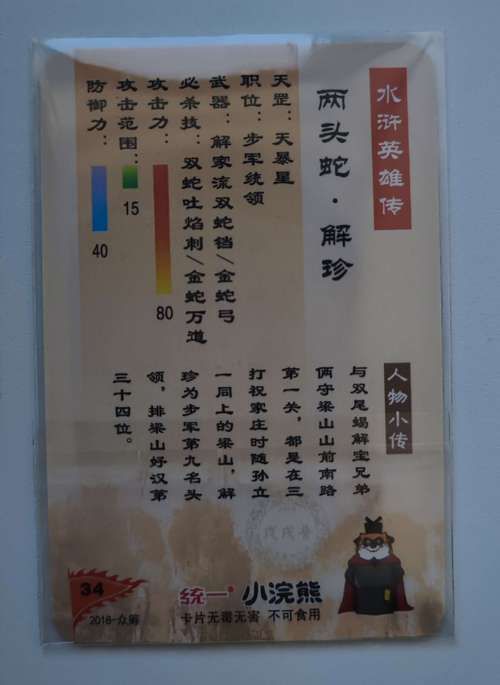 水浒英雄传
两头蛇·解珍
天罡：天暴星
职位：步军统领
武器：解家流双蛇镋/金蛇弓
必杀技：双蛇吐焰刺/金蛇万道
攻击力：
80
攻击范围：
15
防御力：
40
人物小传
与双尾蝎解宝兄弟
俩守梁山山前南路
第一关，都是在三
打祝家庄时随孙立
一同上的梁山，解
珍为步军第九名头
领，排梁山好汉第
三十四位。
34
2018-众筹
统一 小浣熊
卡片无毒无害 不可食用